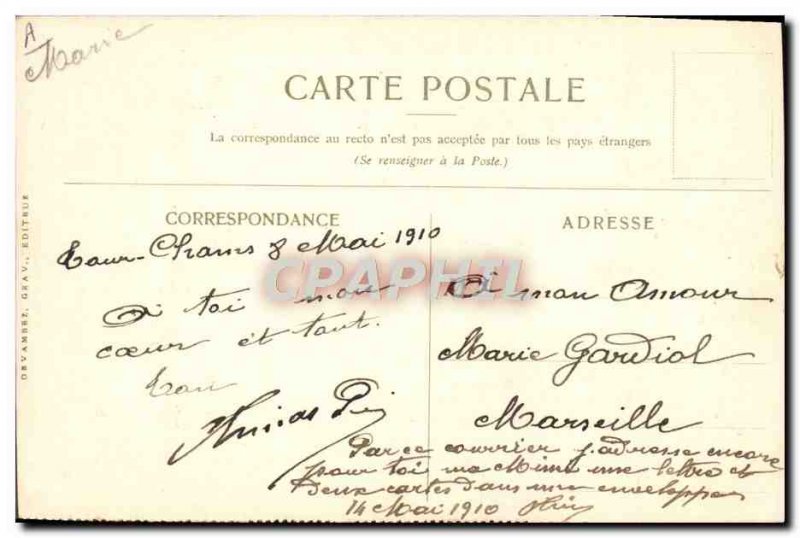 A
Marie
CARTE POSTALE
La correspondance au recto n'est pas acceptée par tous les pays étrangers
(Se renseigner à la Poste.)
CORRESPONDANCE
8 Mai 1910
A toi mon
cœur et tout.
ton
ADRESSE
A mon Amour
Marie Gardiol
Marseille
Par ce courrier j'adresse encore
pour toi ma Mimi une lettre et
Deux cartes dans une enveloppe
14 Mai 1910
DEVAMBEZ, GRAV., EDITEUR
CPAPHIL